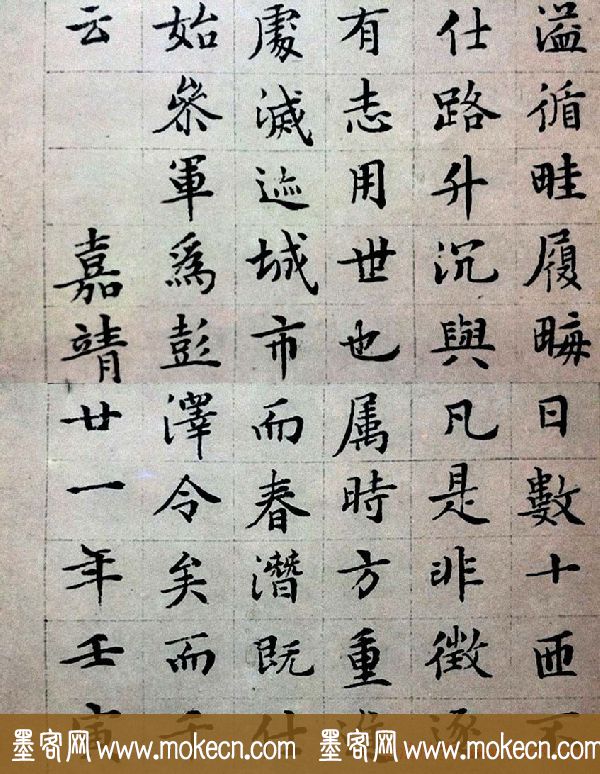 溢循畦履畮日數十匝不
仕路升沉與凡是非徵逐
有志用世也属時方重進
處滅迹城市而春潜既仕
始叅軍爲彭澤令矣而千
云 嘉靖廿一年壬寅
墨客网 www.mokecn.com 墨客网 www.mokecn.com